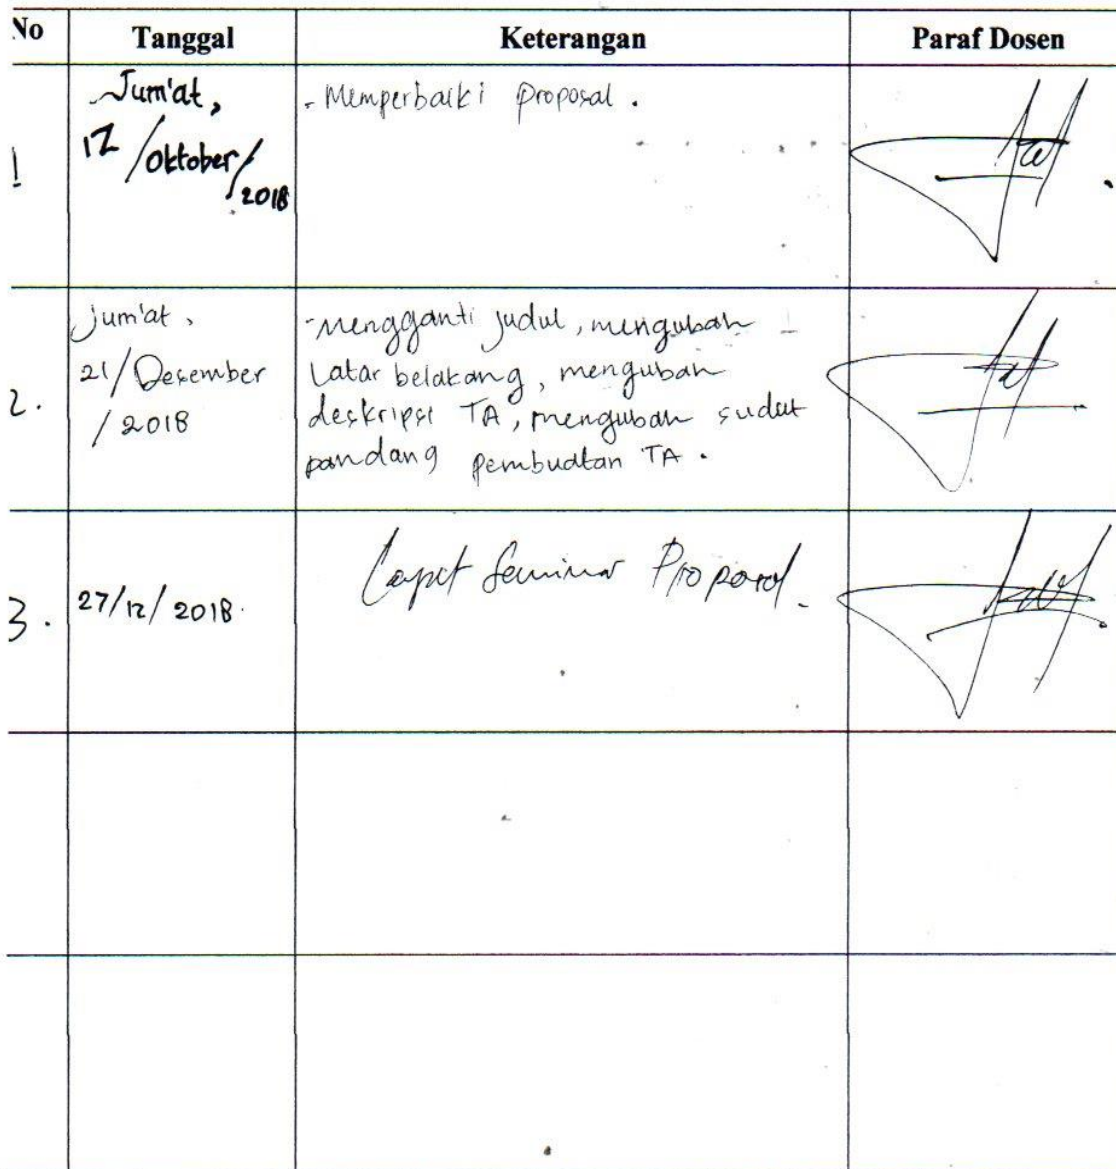 No Tanggal Keterangan Paraf Dosen
1 Jum'at,
12/Oktober/
2018
- Memperbaiki proposal.
2. Jum'at,
21/Desember
/2018
- Mengganti judul, mengubah
Latar belakang, mengubah
deskripsi TA, mengubah sudut
pandang pembuatan TA.
3. 27/12/2018.
Seminar Proposal.